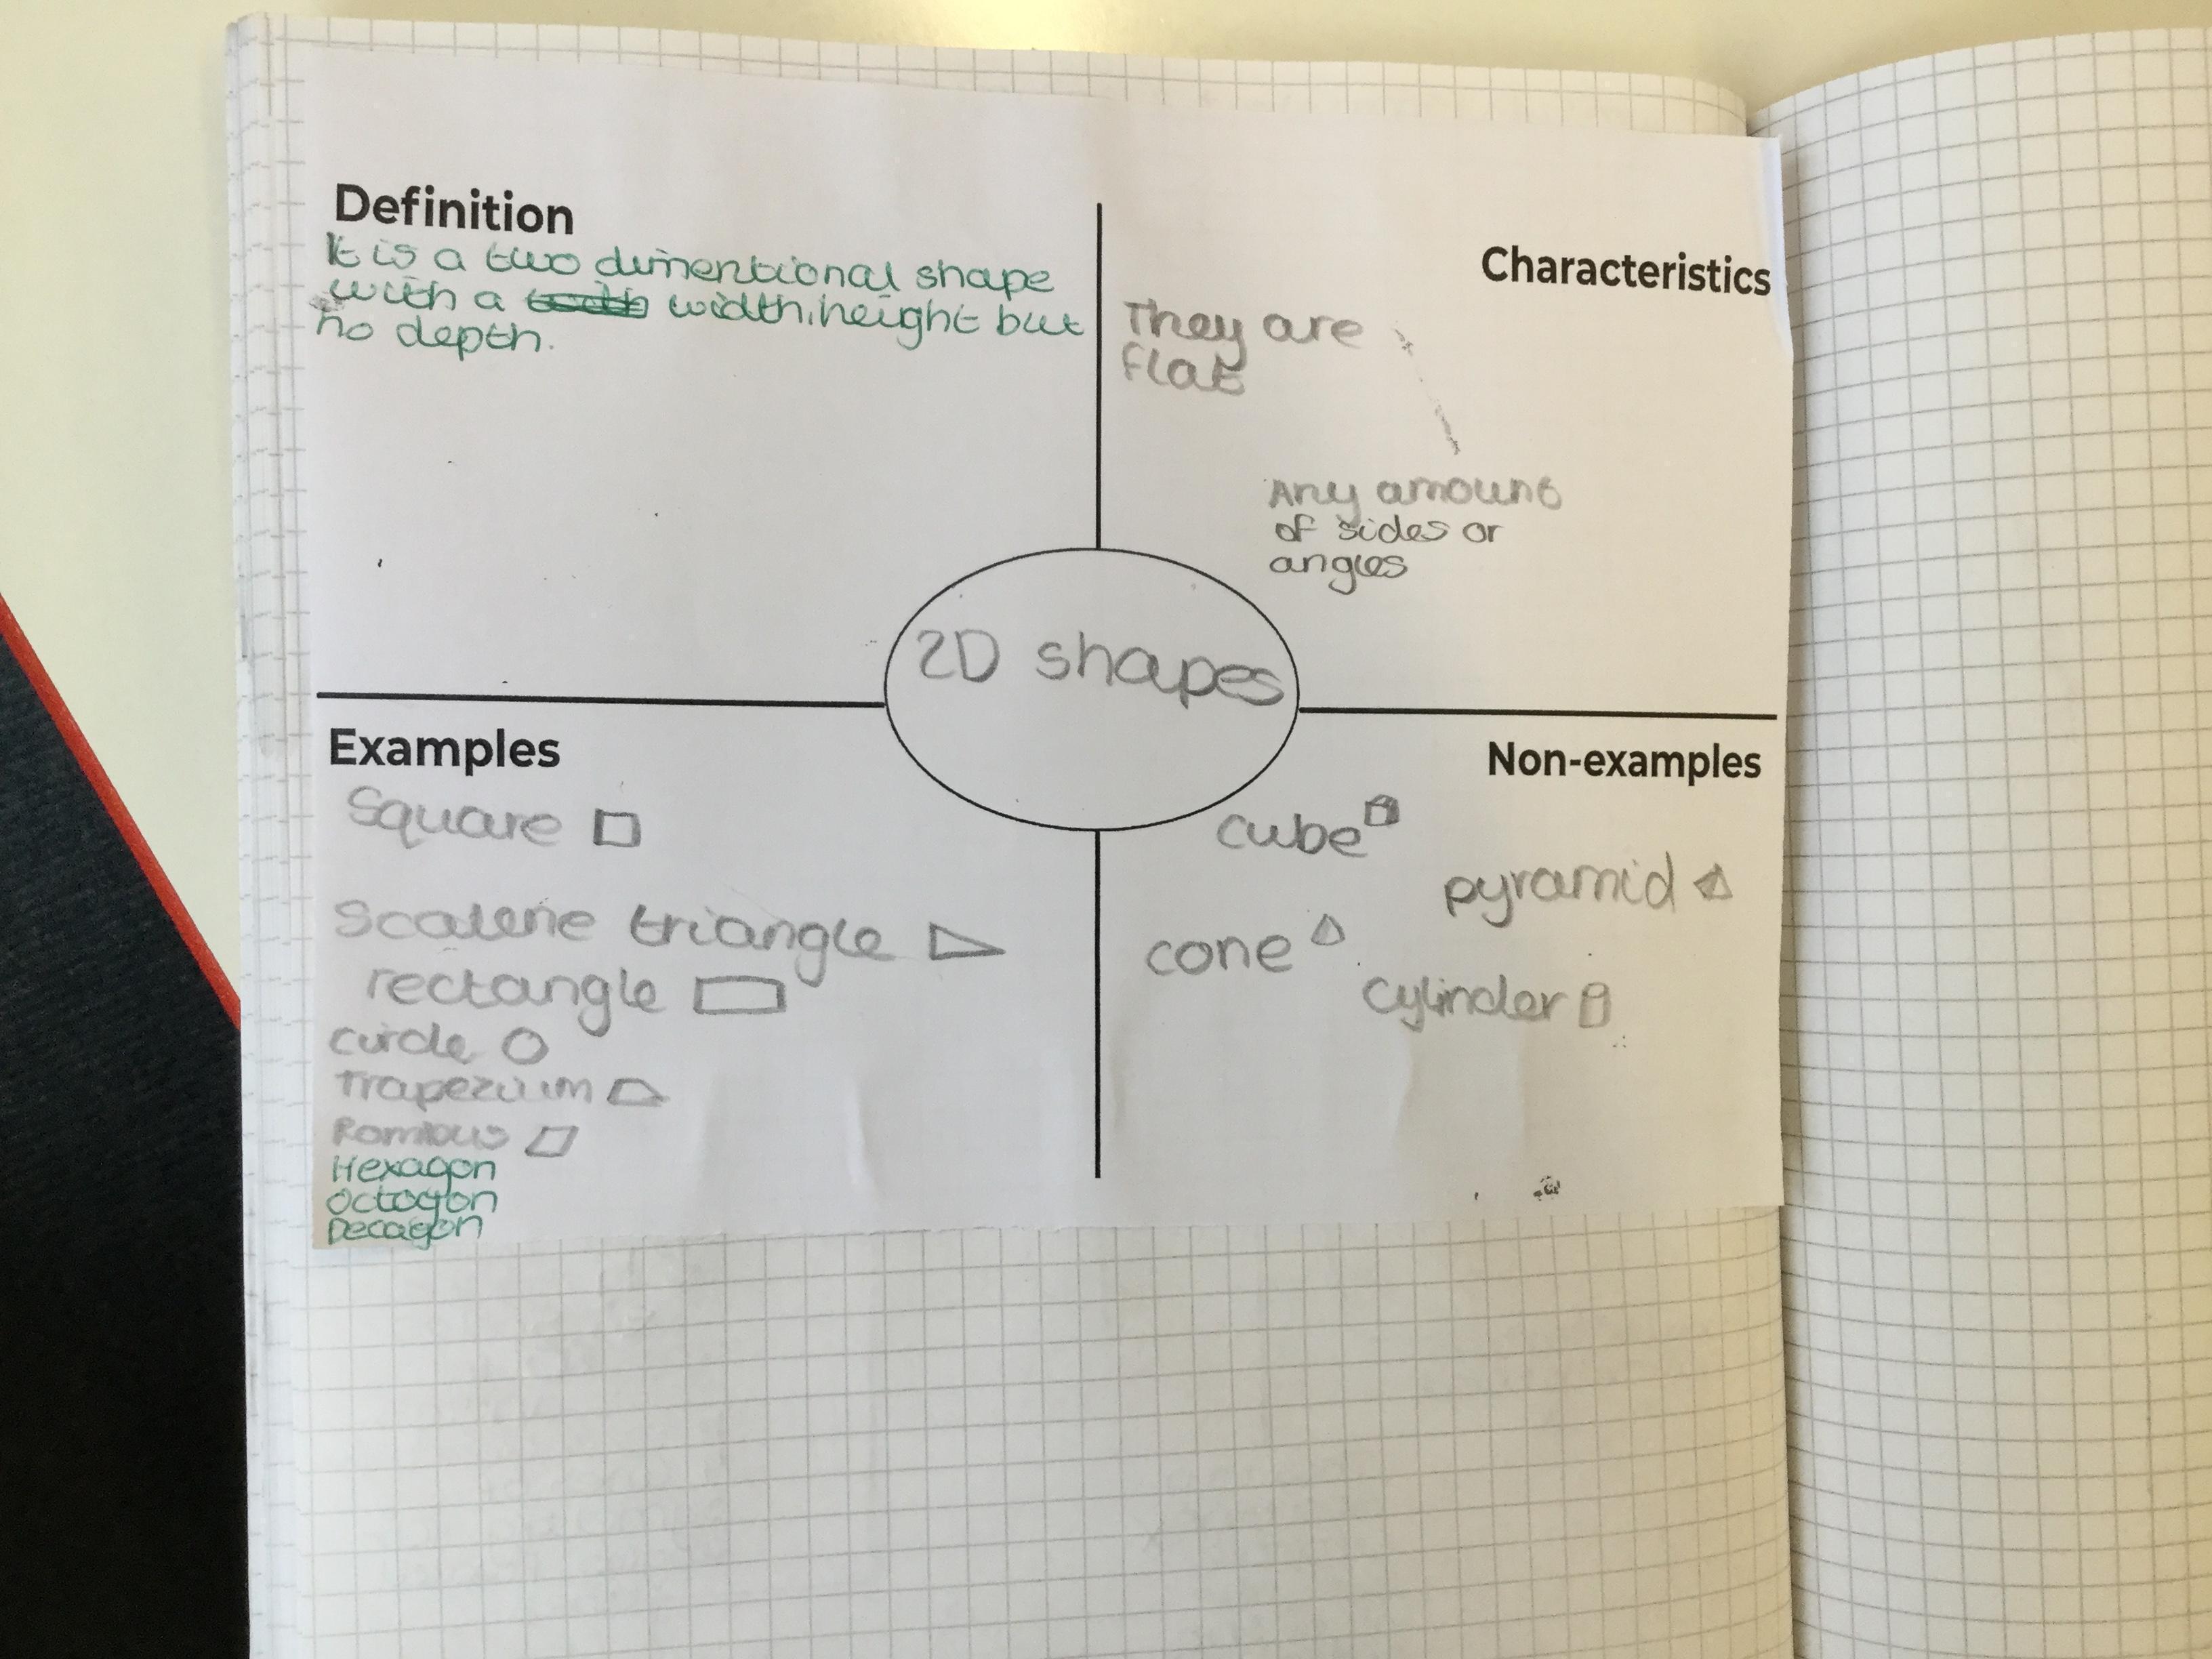 Definition
It is a two dimentional shape
with a width, height but
no depth.
Characteristics
They are
flat
Any amount
of sides or
angles
2D shapes
Examples
Square
Scalene triangle
rectangle
circle
Trapezuim
Rombus
Hexagon
Octogon
Decagon
Non-examples
cube
pyramid
cone
cylinder